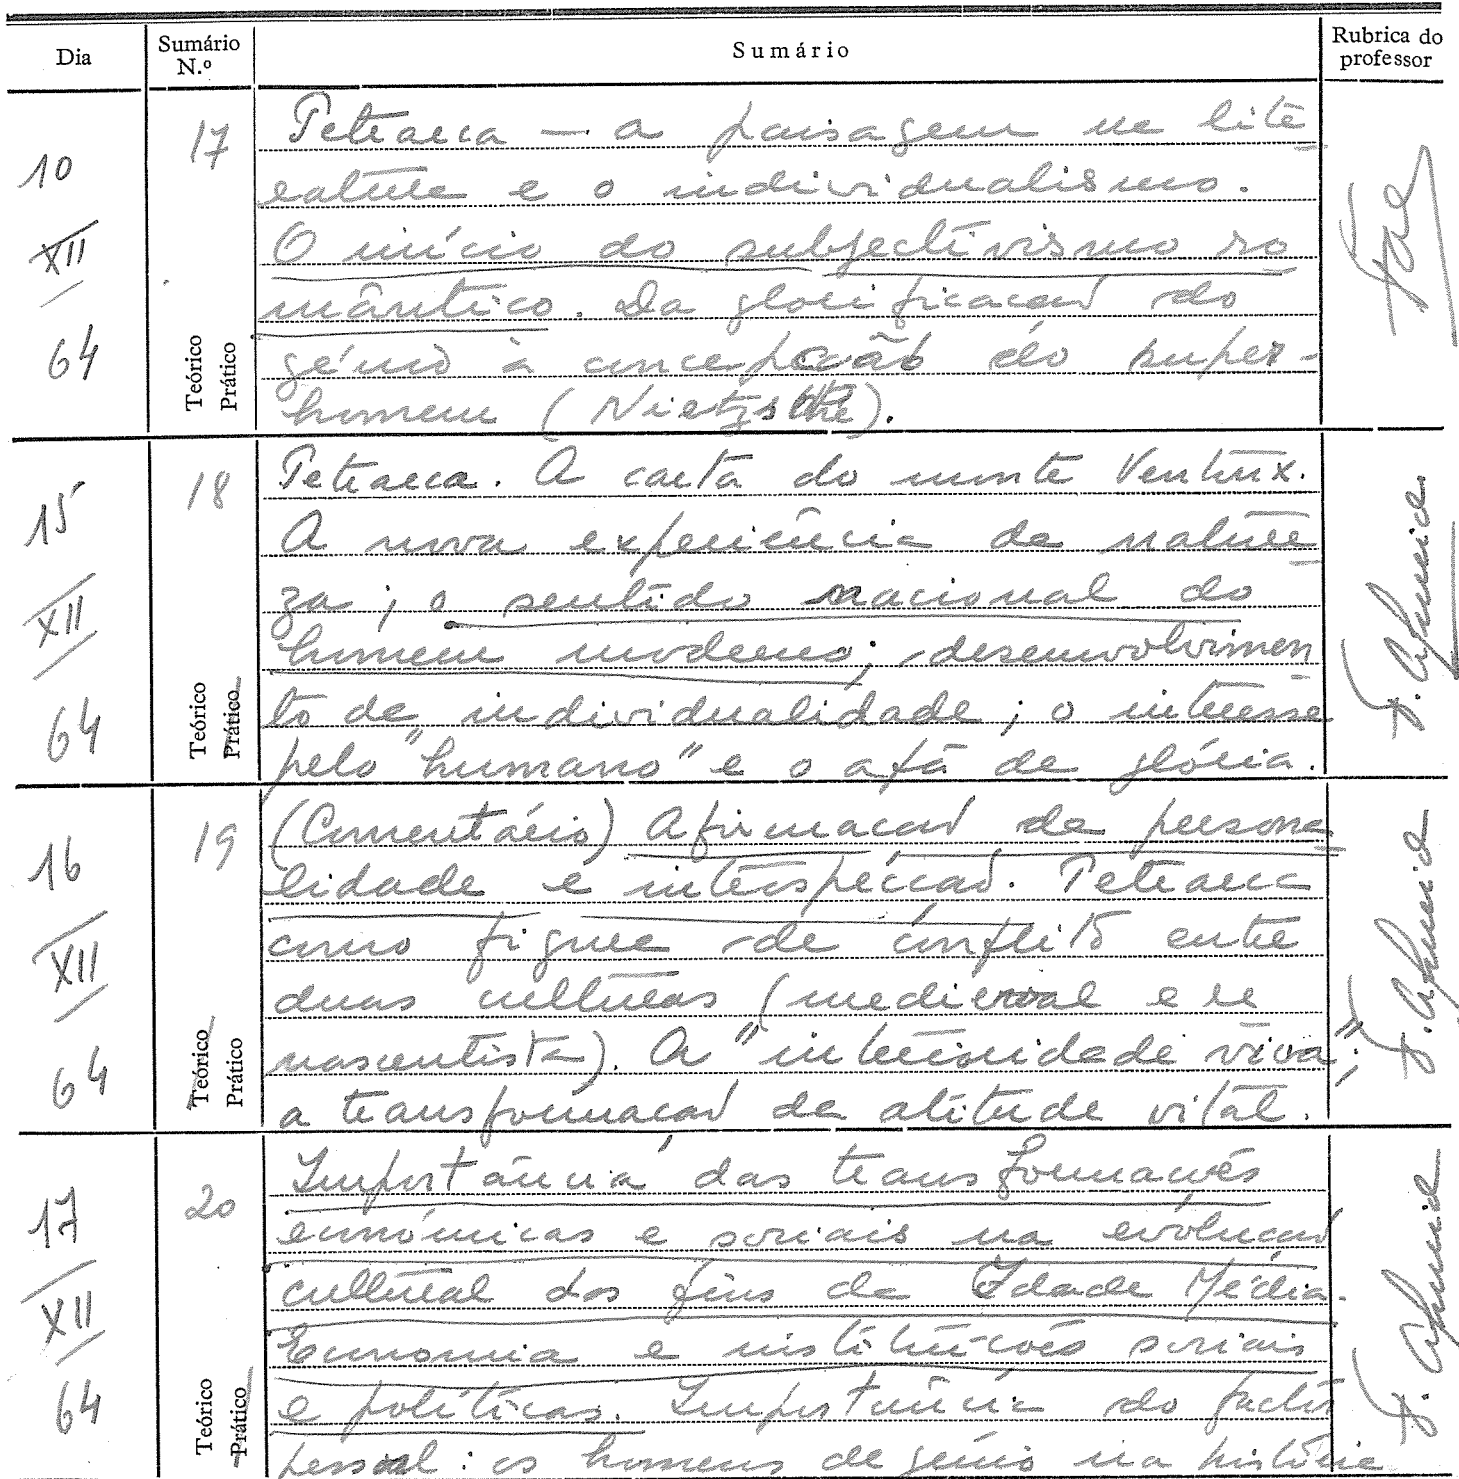 Dia Sumário N.º Sumário Rubrica do professor
10 XII 64
17
Teórico Prático
Petrarca — a paisagem na lite
ratura e o individualismo.
O início do subjectivismo ro
mântico. Da glorificação do
génio à concepção do super-
homem (Nietzsche).
15 XII 64
18
Teórico Prático
Petrarca. A carta do monte Ventux.
A nova experiência da nature
za; o sentido racional do
homem moderno; desenvolvimen
to da individualidade; o interesse
pelo "humano" e o afã de glória.
F. Almeida
16 XII 64
19
Teórico Prático
(Comentário) Afirmação da persona
lidade e interspecção. Petrarca
como figura de conflito entre
duas culturas (medieval e re
nascentista). A "interioridade viva";
a transformação da atitude vital.
F. Almeida
17 XII 64
20
Teórico Prático
Importância das transformações
económicas e sociais na evolução
cultural dos fins da Idade Média.
Economia e instituições sociais
e políticas. Importância do factor
pessoal: os homens de génio na história
F. Almeida